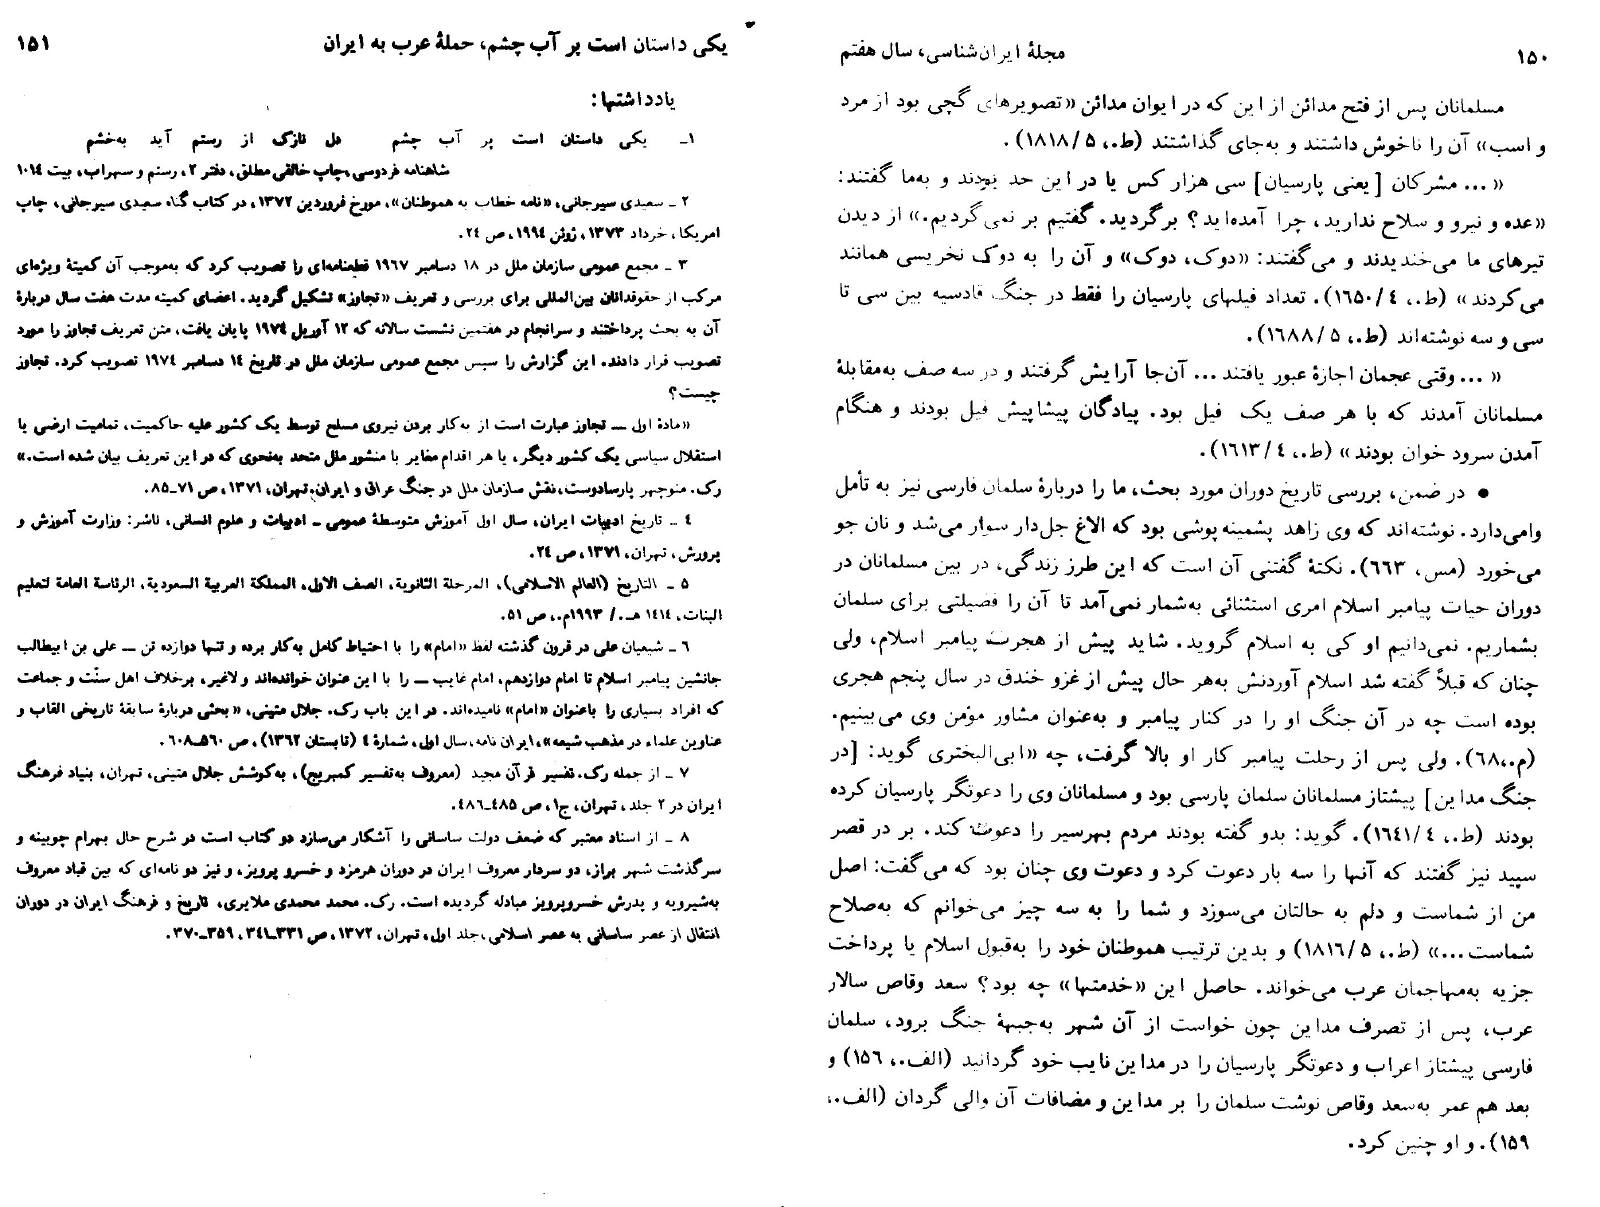 ۱۵۰
مجلهٔ ایران‌شناسی، سال هفتم
مسلمانان پس از فتح مدائن از این که در ایوان مدائن «تصویرهای گچی بود از مرد
و اسب» آن را ناخوش داشتند و به‌جای گذاشتند (ط.، ۵/ ۱۸۱۸).
«... مشرکان [یعنی پارسیان] سی هزار کس یا در این حد بودند و به‌ما گفتند:
«عده و نیرو و سلاح ندارید، چرا آمده‌اید؟ برگردید. گفتیم بر نمی‌گردیم.» از دیدن
تیرهای ما می‌خندیدند و می‌گفتند: «دوک، دوک» و آن را به دوک نخریسی همانند
می‌کردند» (ط.، ٤/ ۱٦۵۰). تعداد فیلهای پارسیان را فقط در جنگ قادسیه بین سی تا
سی و سه نوشته‌اند (ط.، ۵/ ۱٦۸۸).
«... وقتی عجمان اجازهٔ عبور یافتند ... آن‌جا آرایش گرفتند و در سه صف به‌مقابلهٔ
مسلمانان آمدند که با هر صف یک فیل بود. پیادگان پیشاپیش فیل بودند و هنگام
آمدن سرود خوان بودند» (ط.، ٤/ ۱٦۱۳).
● در ضمن، بررسی تاریخ دوران مورد بحث، ما را دربارهٔ سلمان فارسی نیز به تأمل
وامی‌دارد. نوشته‌اند که وی زاهد پشمینه پوشی بود که الاغ جل‌دار سوار می‌شد و نان جو
می‌خورد (مس، ٦٦۳). نکتهٔ گفتنی آن است که این طرز زندگی، در بین مسلمانان در
دوران حیات پیامبر اسلام امری استثنائی به‌شمار نمی‌آمد تا آن را فضیلتی برای سلمان
بشماریم. نمی‌دانیم او کی به اسلام گروید. شاید پیش از هجرت پیامبر اسلام، ولی
چنان که قبلاً گفته شد اسلام آوردنش به‌هر حال پیش از غزو خندق در سال پنجم هجری
بوده است چه در آن جنگ او را در کنار پیامبر و به‌عنوان مشاور مؤمن وی می‌بینیم.
(م.،٦۸). ولی پس از رحلت پیامبر کار او بالا گرفت، چه «ابی‌البختری گوید: [در
جنگ مداین] پیشتاز مسلمانان سلمان پارسی بود و مسلمانان وی را دعوتگر پارسیان کرده
بودند (ط.، ٤/ ۱٦٤۱). گوید: بدو گفته بودند مردم بهرسیر را دعوت کند. بر در قصر
سپید نیز گفتند که آنها را سه بار دعوت کرد و دعوت وی چنان بود که می‌گفت: اصل
من از شماست و دلم به حالتان می‌سوزد و شما را به سه چیز می‌خوانم که به‌صلاح
شماست...» (ط.، ۵/ ۱۸۱٦) و بدین ترتیب هموطنان خود را به‌قبول اسلام یا پرداخت
جزیه به‌مهاجمان عرب می‌خواند. حاصل این «خدمتها» چه بود؟ سعد وقاص سالار
عرب، پس از تصرف مداین چون خواست از آن شهر به‌جبههٔ جنگ برود، سلمان
فارسی پیشتاز اعراب و دعوتگر پارسیان را در مداین نایب خود گردانید (الف.، ۱۵٦) و
بعد هم عمر به‌سعد وقاص نوشت سلمان را بر مداین و مضافات آن والی گردان (الف.،
۱۵۹). و او چنین کرد.
یکی داستان است پر آب چشم، حملهٔ عرب به ایران
۱۵۱
یادداشتها:
۱ـ یکی داستان است پر آب چشم دل نازک از رستم آید به‌خشم
شاهنامه فردوسی، چاپ خالقی مطلق، دفتر ۲، رستم و سهراب، بیت ۱۰۱٤
۲ ـ سعیدی سیرجانی، «نامه خطاب به هموطنان»، مورخ فروردین ۱۳۷۲، در کتاب گناه سعیدی سیرجانی، چاپ
امریکا، خرداد ۱۳۷۳، ژوئن ۱۹۹٤، ص ۲٤.
۳ ـ مجمع عمومی سازمان ملل در ۱۸ دسامبر ۱۹٦۷ قطعنامه‌ای را تصویب کرد که به‌موجب آن کمیتهٔ ویژه‌ای
مرکب از حقوقدانان بین‌المللی برای بررسی و تعریف «تجاوز» تشکیل گردید. اعضای کمیته مدت هفت سال دربارهٔ
آن به بحث پرداختند و سرانجام در هفتمین نشست سالانه که ۱۲ آوریل ۱۹۷٤ پایان یافت، متن تعریف تجاوز را مورد
تصویب قرار دادند. این گزارش را سپس مجمع عمومی سازمان ملل در تاریخ ۱٤ دسامبر ۱۹۷٤ تصویب کرد. تجاوز
چیست؟
«مادهٔ اول ــ تجاوز عبارت است از به‌کار بردن نیروی مسلح توسط یک کشور علیه حاکمیت، تمامیت ارضی یا
استقلال سیاسی یک کشور دیگر، یا هر اقدام مغایر با منشور ملل متحد به‌نحوی که در این تعریف بیان شده است.»
رک. منوچهر پارسادوست، نقش سازمان ملل در جنگ عراق و ایران، تهران، ۱۳۷۱، ص ۷۱ـ۸۵.
٤ ـ تاریخ ادبیات ایران، سال اول آموزش متوسطهٔ عمومی ـ ادبیات و علوم انسانی، ناشر: وزارت آموزش و
پرورش، تهران، ۱۳۷۱، ص ۲٤.
۵ ـ التاریخ (العالم الاسلامی)، المرحلة الثانویة، الصف الاول، المملکة العربیة السعودیة، الرئاسة العامة لتعلیم
البنات، ۱٤۱٤ هـ./ ۱۹۹۳م.، ص ۵۱.
٦ ـ شیعیان علی در قرون گذشته لفظ «امام» را با احتیاط کامل به‌کار برده و تنها دوازده تن ــ علی بن ابیطالب
جانشین پیامبر اسلام تا امام دوازدهم، امام غایب ــ را با این عنوان خوانده‌اند و لاغیر، برخلاف اهل سنّت و جماعت
که افراد بسیاری را باعنوان «امام» نامیده‌اند. در این باب رک. جلال متینی، «بحثی دربارهٔ سابقهٔ تاریخی القاب و
عناوین علماء در مذهب شیعه»، ایران نامه، سال اول، شمارهٔ ٤ (تابستان ۱۳٦۲)، ص ۵٦۰ـ٦۰۸.
۷ ـ از جمله رک. تفسیر قرآن مجید (معروف به‌تفسیر کمبریج)، به‌کوشش جلال متینی، تهران، بنیاد فرهنگ
ایران در ۲ جلد، تهران، ج۱، ص ٤۸۵ـ٤۸٦.
۸ ـ از اسناد معتبر که ضعف دولت ساسانی را آشکار می‌سازد دو کتاب است در شرح حال بهرام چوبینه و
سرگذشت شهر براز، دو سردار معروف ایران در دوران هرمزد و خسرو پرویز، و نیز دو نامه‌ای که بین قباد معروف
به‌شیرویه و پدرش خسروپرویز مبادله گردیده است. رک. محمد محمدی ملایری، تاریخ و فرهنگ ایران در دوران
انتقال از عصر ساسانی به عصر اسلامی، جلد اول، تهران، ۱۳۷۲، ص ۳۳۱ـ۳٤۱، ۳۵۹ـ۳۷۰.